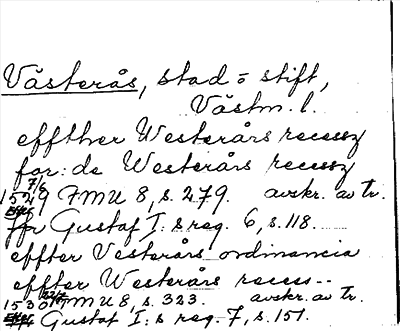 Västerås, stad o stift,
Västm. l.
effther Westerårs recessz
for: de Westerårs recessz
1529 7/6 FMU 8, s. 279. avskr. av tr.
Gustaf I: s reg. 6, s. 118.
effter Vesterårs ordinancia
effter Westerårs recess--
1530 FMU 8, s. 323. avskr. av tr.
Gustaf I: s reg. 7, s. 151.